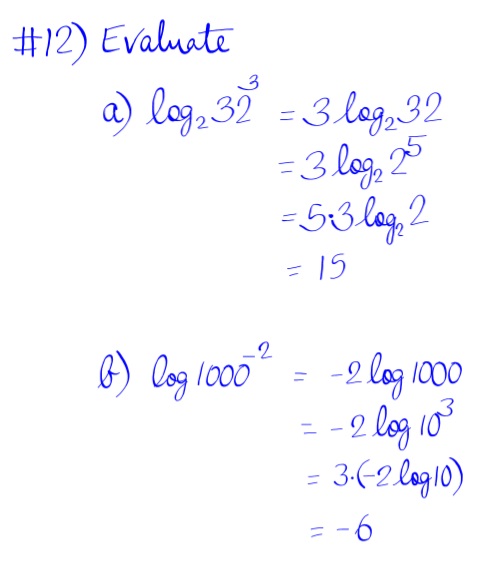 #12) Evaluate
a) log₂32³ = 3log₂32
= 3log₂2⁵
= 5·3log₂2
= 15
b) log1000⁻² = -2log1000
= -2log10³
= 3·(-2log10)
= -6